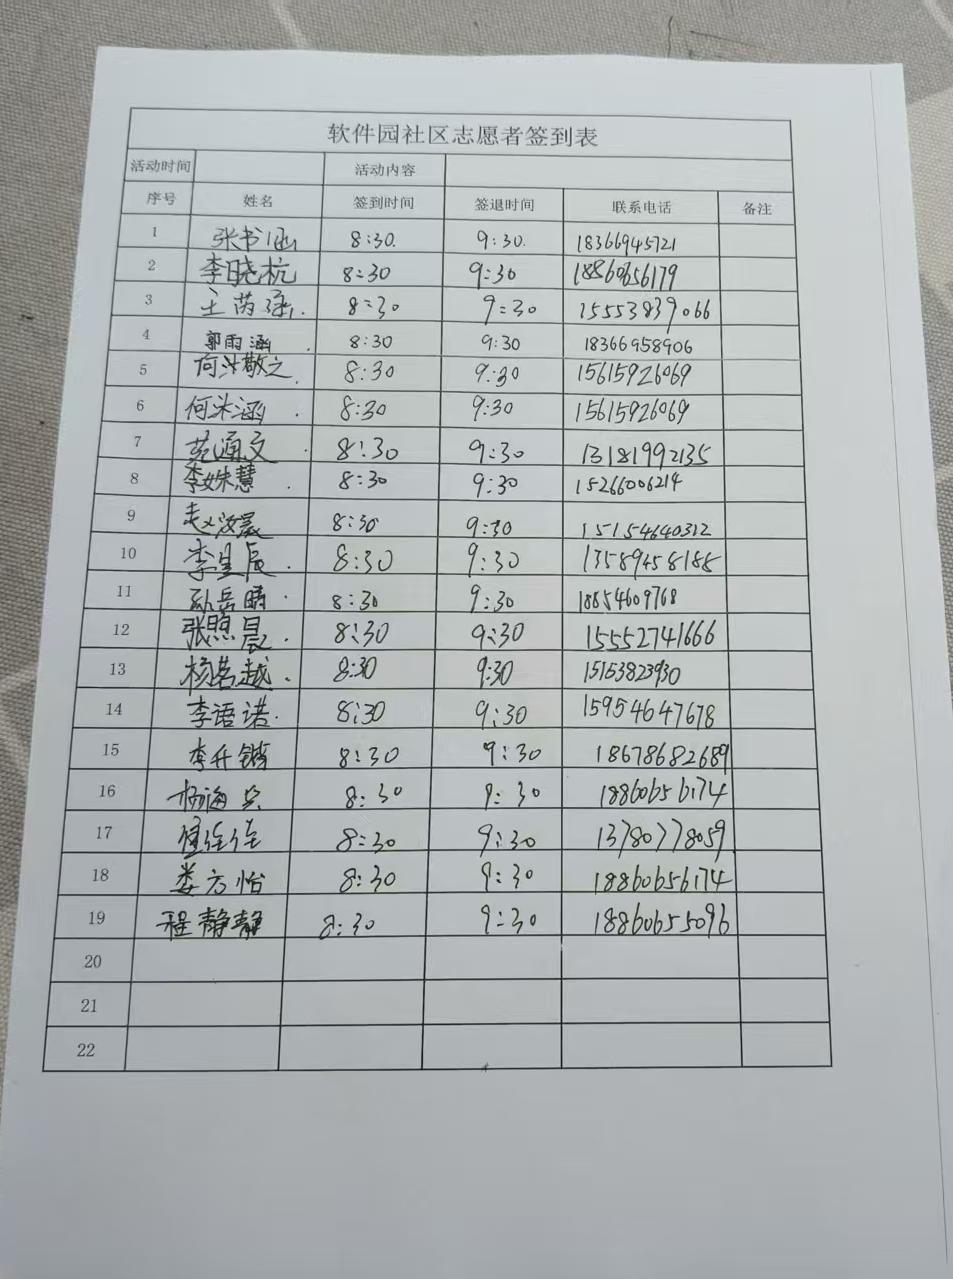 软件园社区志愿者签到表
活动时间 活动内容
序号 姓名 签到时间 签退时间 联系电话 备注
1 张书涵 8:30. 9:30. 18366945721
2 李晓杭 8:30 9:30 18860656179
3 王芮涵. 8:30 9:30 15553839066
4 郭雨涵. 8:30 9:30 18366958906
5 何沐敬之. 8:30 9:30 15615926069
6 何米涵. 8:30 9:30 15615926069
7 苑涵文. 8:30 9:30 13181992135
8 李姝慧. 8:30 9:30 15266006214
9 赵汝晨 8:30 9:30 15154640312
10 李星辰. 8:30 9:30 13589458188
11 孙岳晴. 8:30 9:30 18654609768
12 张照晨. 8:30 9:30 15552741666
13 杨若越. 8:30 9:30 15153823930
14 李语诺. 8:30 9:30 15954647678
15 李升锴 8:30 9:30 18678682689
16 杨海 8:30 9:30 18860656174
17 8:30 9:30 13780778059
18 娄方怡 8:30 9:30 18860656174
19 程静静 8:30 9:30 18860655096
20
21
22